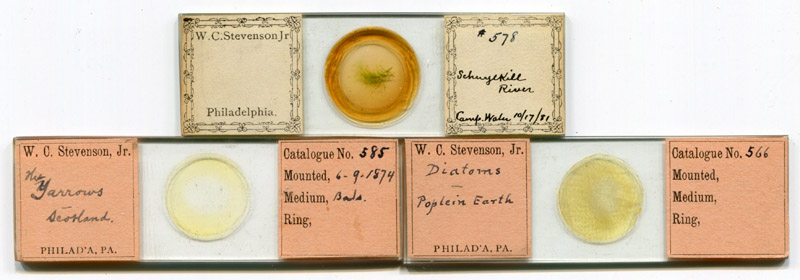 W. C. Stevenson Jr
Philadelphia.
# 578
Schuylkill
River
Camp. Water 10/17/81
W. C. Stevenson, Jr.
The
Yarrows
Scotland.
PHILAD'A, PA.
Catalogue No. 585
Mounted, 6-9-1874
Medium, Bals.
Ring,
W. C. Stevenson, Jr.
Diatoms
—
Poplein Earth
PHILAD'A, PA.
Catalogue No. 566
Mounted,
Medium,
Ring,